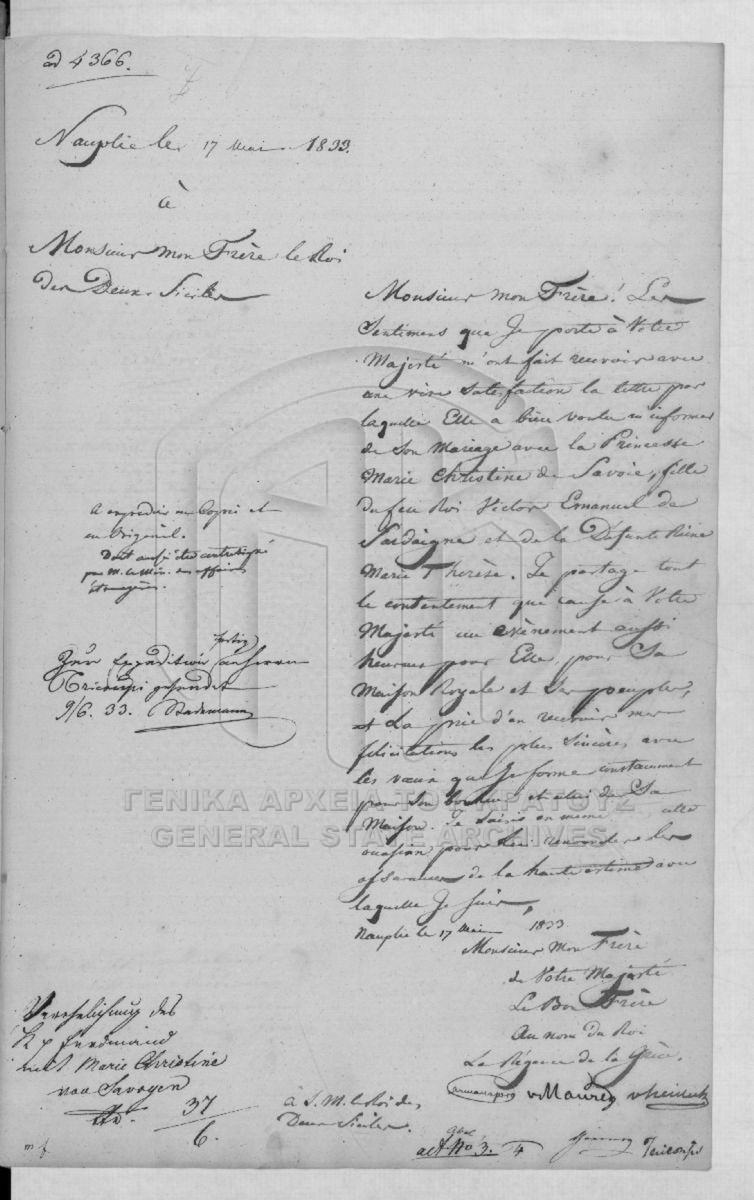 ad 4366.
Nauplie le 17 Mai 1833.
à
Monsieur mon Frère le Roi
des Deux Siciles
Monsieur mon Frère! Les
Sentimens que Je porte à Votre
Majesté m'ont fait recevoir avec
une vive satisfaction la lettre par
laquelle Elle a bien voulu m'informer
de Son Mariage avec la Princesse
Marie Christine de Savoie, fille
du feu Roi Victor Emanuel de
Sardaigne et de la Defunte Reine
Marie Thérèse. Je partage tout
le contentement que cause à Votre
Majesté un evènement aussi
heureux pour Elle, pour Sa
Maison Royale et Ses peuples,
et La prie d'en recevoir mes
félicitations les plus sincères, avec
les vœux que Je forme constamment
pour Son bonheur et celui de Sa
Maison. Je saisis en même cette
occasion pour Lui renouveler les
assurances de la haute estime avec
laquelle Je suis,
Nauplie le 17 Mai 1833
Monsieur Mon Frère
de Votre Majesté
Le Bon Frère
Au nom du Roi
La Régence de la Grèce.
Armansperg v Maurer v Heideck
A expedier en Copie et
en Original.
Doit aussi être contresigné
par M. le Min. des affaires
étrangères.
Zur Expedition an Herrn
Tricoupi gesendet
9/6. 33. Stademann
Verehelichung des
K. Ferdinand
mit Marie Christine
von Savoyen
37
6.
à S. M. le Roi des
Deux Siciles.
act No 3. 4
Tricoupi
ΓΕΝΙΚΑ ΑΡΧΕΙΑ ΤΟΥ ΚΡΑΤΟΥΣ
GENERAL STATE ARCHIVES